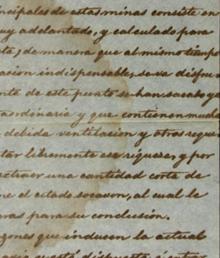 ncipales de estas minas consiste en
uy adelantado, y calculado para
de manera que al mismo tiempo
acion indispensable, se va dispue
nte de este punto se han sacado ya
traordinaria y que contienen mucha
debida ventilacion y otros requi
tar libremente esa riqueza, y por
straer una cantidad corta de
ne el citado socavon, al cual le
varas para su conclusion.
zones que inducen la actual
está dispuesta